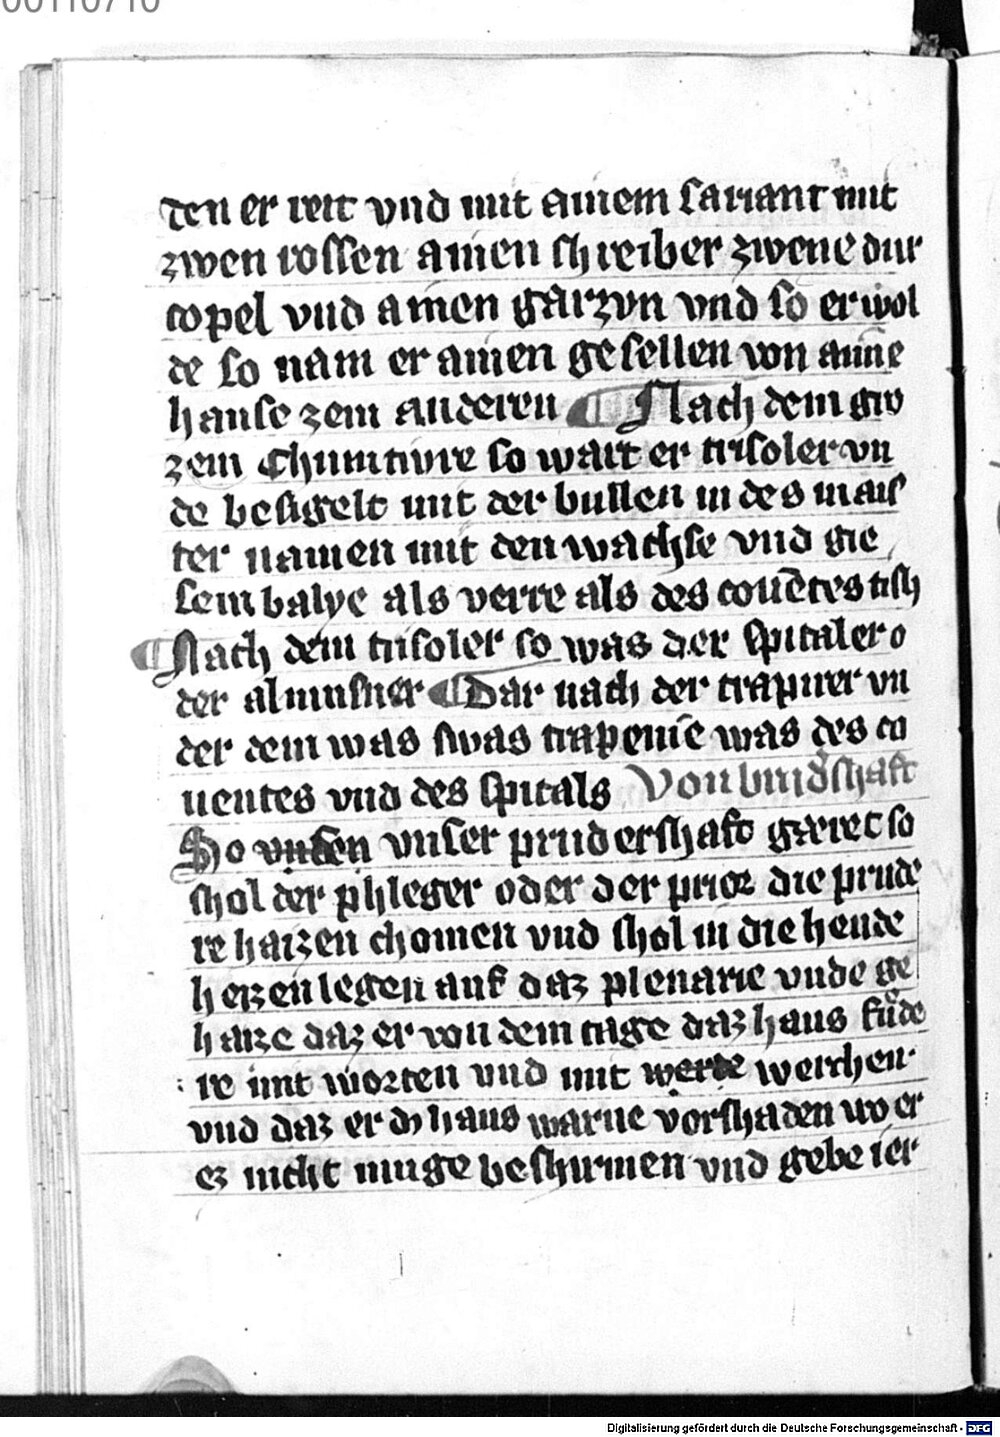 00110710
den er reit vnd mit ainem sariant mit
zwen rossen ainen schreiber zwene dur
copel vnd ainen garzvn vnd so er wol
de so nam er ainen gesellen von aīne
hause zem anderen ¶ Nach dem gro
zem Chumtivre so wart er trisoler vn
de besigelt mit der bullen in des mais
ter namen mit den wachse vnd gie
sein balye als verre als des couētes tish
¶ Nach dem trisoler so was der spitaler o
der almusner ¶ Dar nach der trapirer vn
der dem was swas trapenīe was des co
uentes vnd des spitals Von brudshaft
So vnser prudershaft gæret so
shol der phleger oder der prior die prude
re haizen chomen vnd shol in die hende
heizen legen auf daz plenarie vnde ge
haize daz er von dem tage daz haus fůde
re mit worten vnd mit werchen
vnd daz er dz haus warne vor shaden wo er
ez nicht muge beshirmen vnd gebe ier
Digitalisierung gefördert durch die Deutsche Forschungsgemeinschaft - DFG